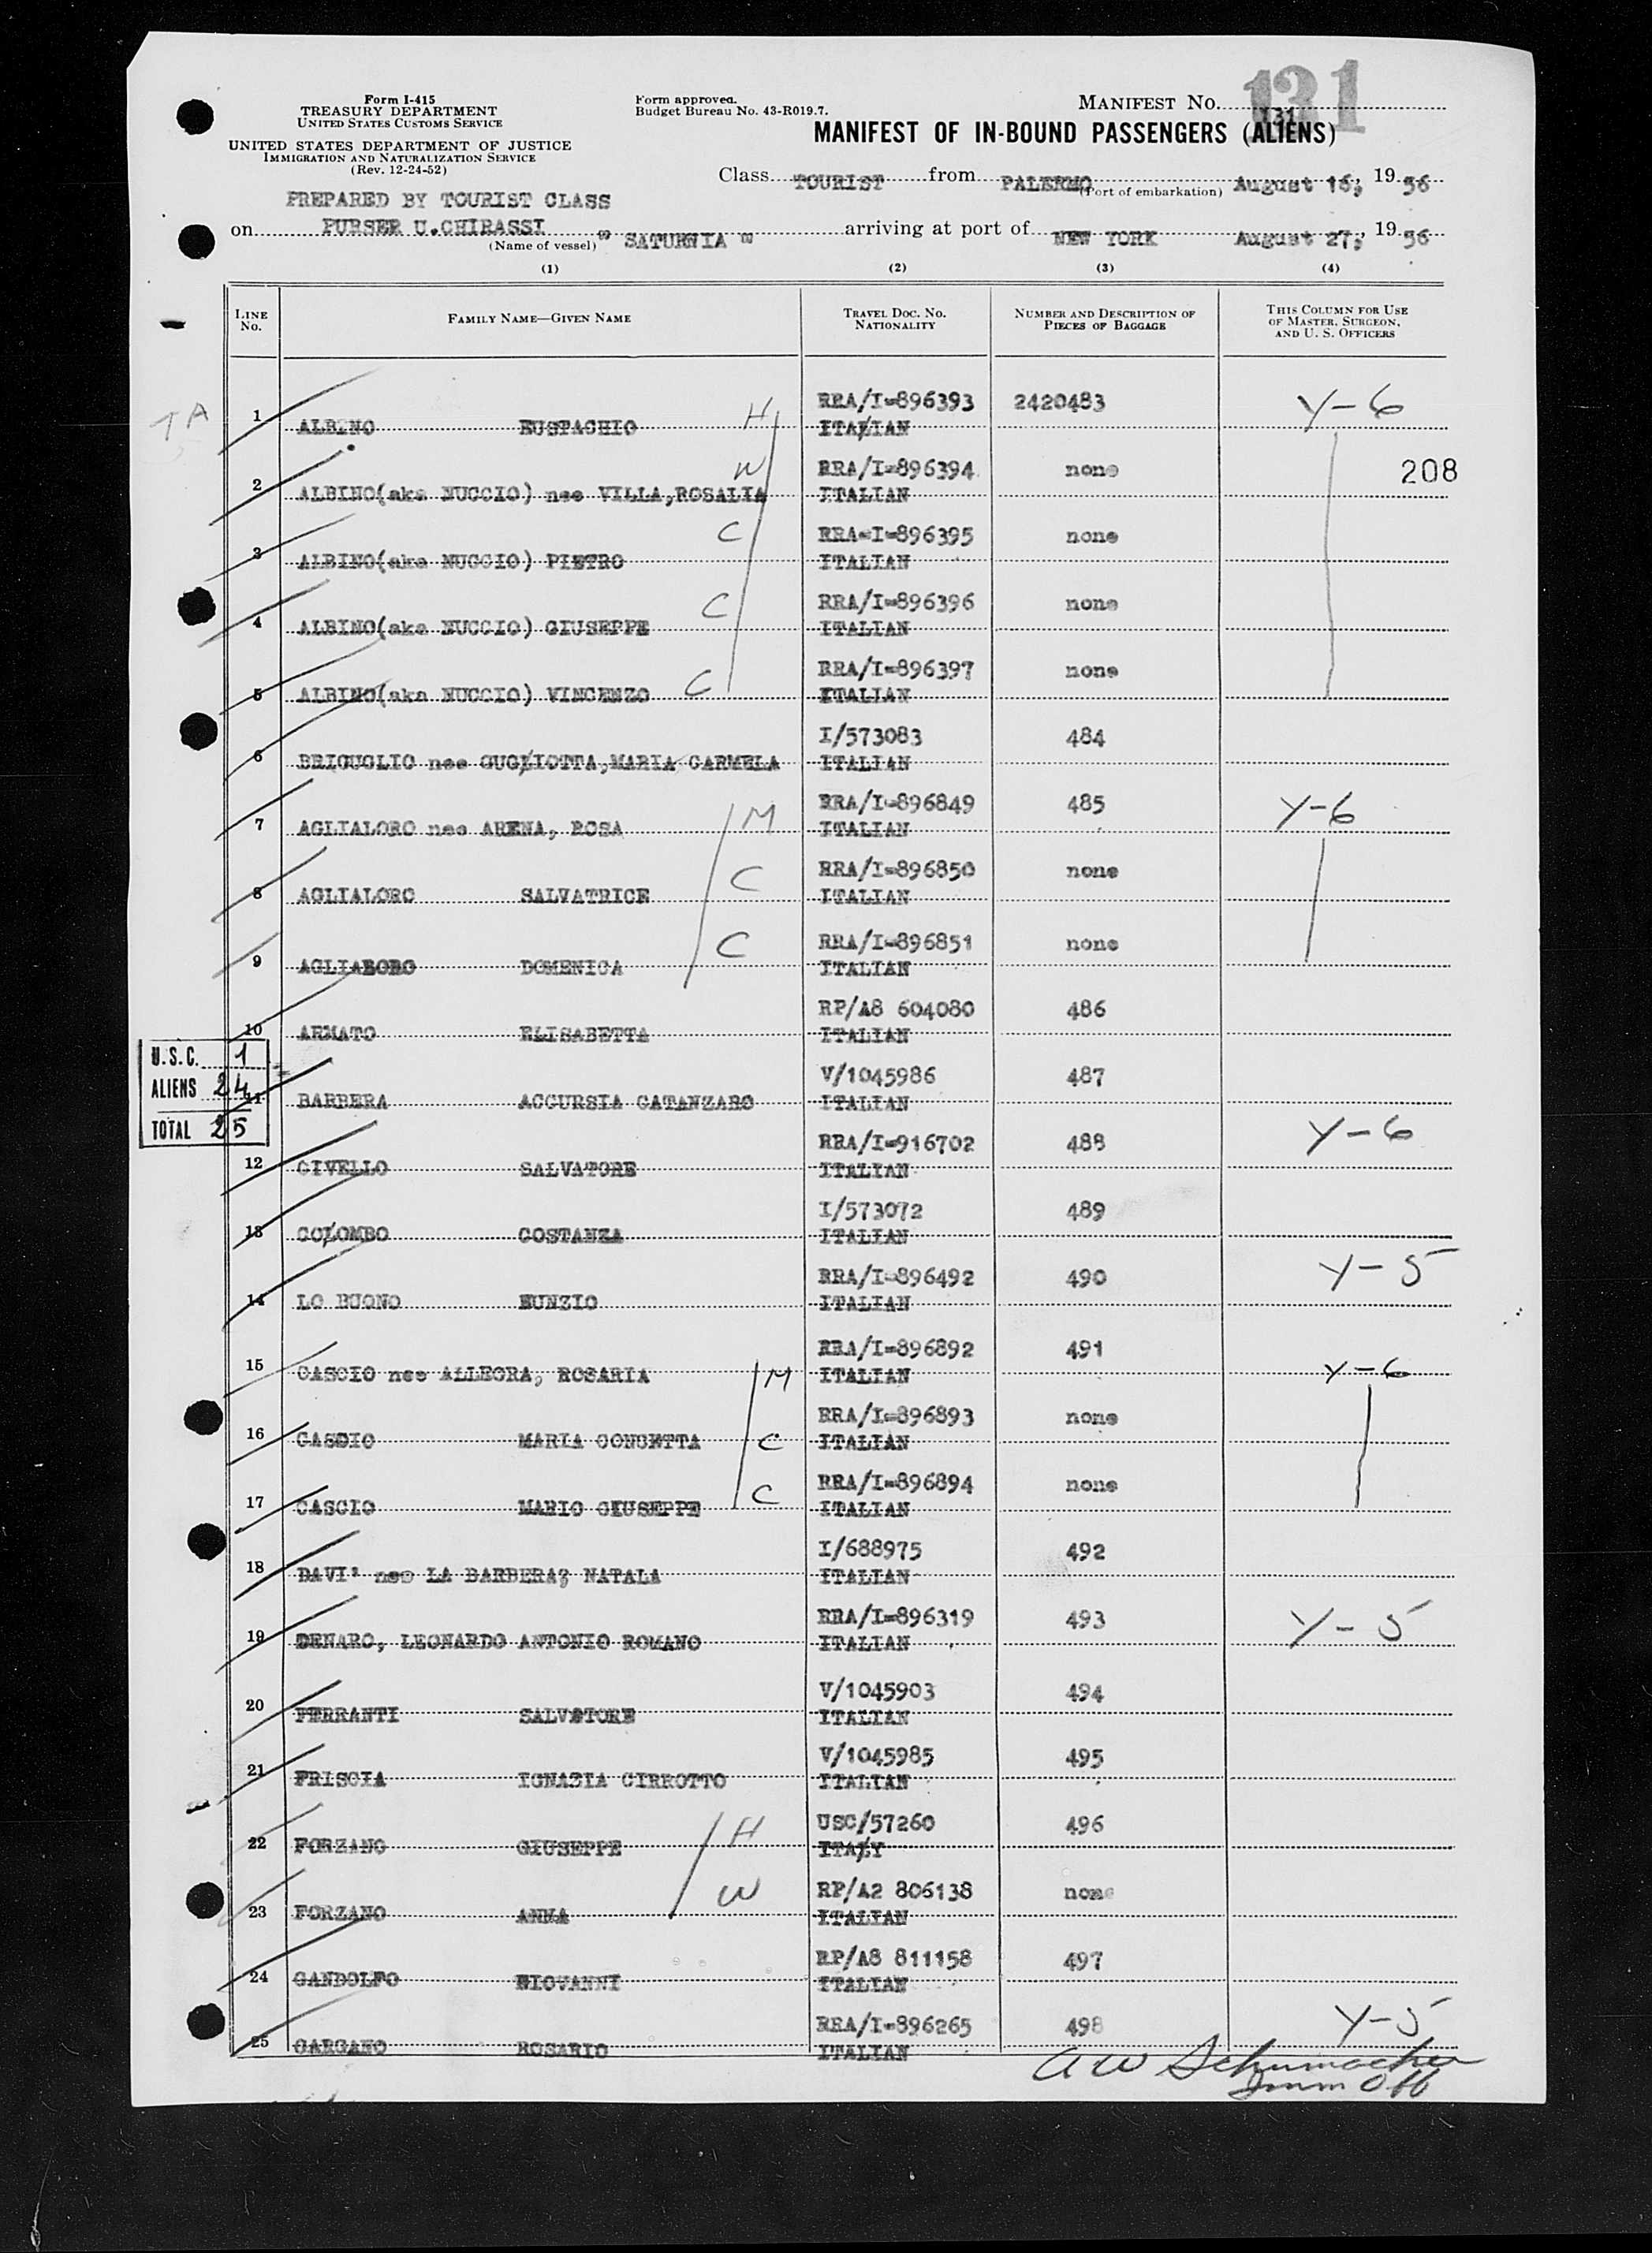 Form I-415
TREASURY DEPARTMENT
UNITED STATES CUSTOMS SERVICE
UNITED STATES DEPARTMENT OF JUSTICE
IMMIGRATION AND NATURALIZATION SERVICE
(Rev. 12-24-52)
Form approved.
Budget Bureau No. 43-R019.7.
MANIFEST No. 131
131
MANIFEST OF IN-BOUND PASSENGERS (ALIENS)
Class TOURIST from PALERMO (Port of embarkation) August 16, 19 56
PREPARED BY TOURIST CLASS
PURSER U.CHIRASSI
on " SATURNIA " (Name of vessel) arriving at port of NEW YORK August 27, 19 56
(1) (2) (3) (4)
LINE No. FAMILY NAME—GIVEN NAME TRAVEL DOC. No. NATIONALITY NUMBER AND DESCRIPTION OF PIECES OF BAGGAGE THIS COLUMN FOR USE OF MASTER, SURGEON, AND U. S. OFFICERS
RRA/I-896393 2420483 Y-6
1 ALBINO EUSTACHIO H ITALIAN
RRA/I-896394 none 208
2 ALBINO(aka NUCCIO) nee VILLA,ROSALIA W ITALIAN
RRA-I-896395 none
3 ALBINO(aka NUCCIO) PIETRO C ITALIAN
RRA/I-896396 none
4 ALBINO(aka NUCCIO) GIUSEPPE C ITALIAN
RRA/I-896397 none
5 ALBINO(aka NUCCIO) VINCENZO C ITALIAN
I/573083 484
6 BRIGUGLIO nee GUGLIOTTA,MARIA CARMELA ITALIAN
RRA/I-896849 485 Y-6
7 AGLIALORO nee ARENA, ROSA M ITALIAN
RRA/I-896850 none
8 AGLIALORO SALVATRICE C ITALIAN
RRA/I-896851 none
9 AGLIALORO DOMENICA C ITALIAN
RP/A8 604080 486
10 ARMATO ELISABETTA ITALIAN
U.S.C. 1
ALIENS 24
TOTAL 25
V/1045986 487
11 BARBERA ACCURSIA CATANZARO ITALIAN
RRA/I-916702 488 Y-6
12 CIVELLO SALVATORE ITALIAN
I/573072 489
13 COLOMBO COSTANZA ITALIAN
RRA/I-896492 490 Y-5
14 LO BUONO NUNZIO ITALIAN
RRA/I-896892 491
15 CASCIO nee ALLEGRA, ROSARIA M ITALIAN Y-6
RRA/I-896893 none
16 CASCIO MARIA CONCETTA C ITALIAN
RRA/I-896894 none
17 CASCIO MARIO GIUSEPPE C ITALIAN
I/688975 492
18 DAVI' nee LA BARBERA, NATALA ITALIAN
RRA/I-896319 493 Y-5
19 DENARO, LEONARDO ANTONIO ROMANO ITALIAN
V/1045903 494
20 FERRANTI SALVATORE ITALIAN
V/1045985 495
21 FRISCIA IGNAZIA CIRROTTO ITALIAN
USC/57260 496
22 FORZANO GIUSEPPE H ITALY
RP/A2 806138 none
23 FORZANO ANNA W ITALIAN
RP/A8 811158 497
24 GANDOLFO GIOVANNI ITALIAN
RRA/I-896265 498 Y-5
25 GARGANO ROSARIO ITALIAN
A W Schumacher
Imm Off